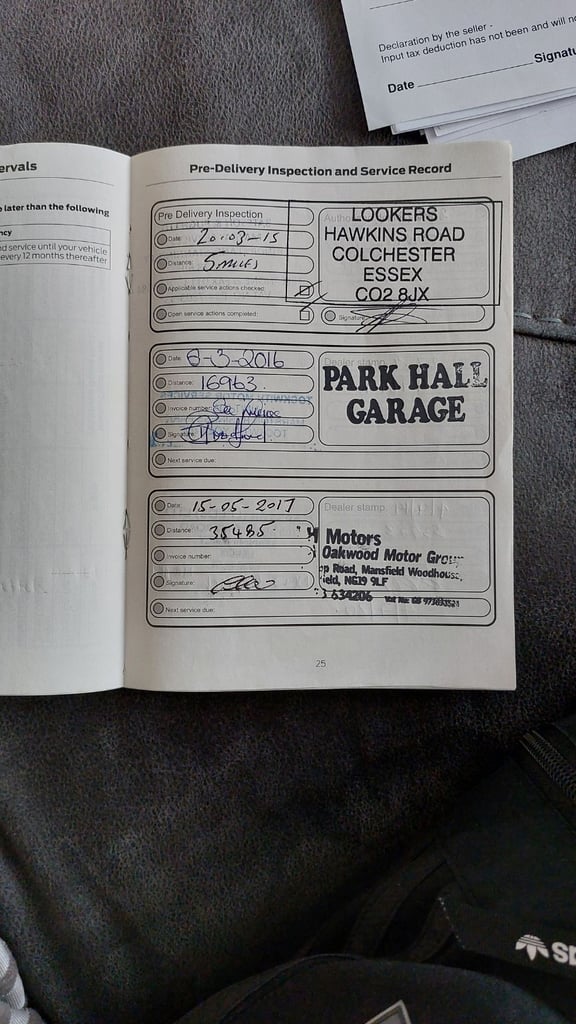 Declaration by the seller -
Input tax deduction has not been and will no
Date
Signatu
ervals
e later than the following
ncy
nd service until your vehicle
every 12 months thereafter
Pre-Delivery Inspection and Service Record
Pre Delivery Inspection
Date: 20-03-15
Distance: 5 MILES
Applicable service actions checked:
Open service actions completed:
LOOKERS
HAWKINS ROAD
COLCHESTER
ESSEX
CO2 8JX
Signature
Date: 8-3-2016
Distance: 16963.
Invoice number:
Signature:
Next service due:
Dealer stamp
PARK HALL
GARAGE
Date: 15-05-2017
Distance: 35485.
Invoice number:
Signature:
Next service due:
Dealer stamp
Motors
Oakwood Motor Group
Road, Mansfield Woodhouse,
ield, NG19 9LF
634206
25